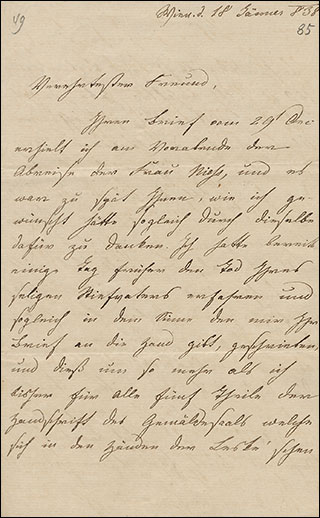 49
Wien d. 18 Jänner 858
85
Verehrtester Freund,
Ihren Brief vom 29 Dec
erhielt ich am Vorabende der
Abreise der Frau und es
war zu spät Ihnen, wie ich ge
wünscht hätte sogleich durch dieselbe
dafür zu danken. Ich hatte bereits
einige Tag früher den Tod Ihres
seligen Stiefvaters erfahren und
sogleich in dem Sinne den mir Ihr
Brief an die Hand gibt, geschrieben,
und dieß um so mehr als ich
bisher für alle fünf Theile der
Handschrift des Gemäldesaals welche
sich in den Händen der Leske'schen